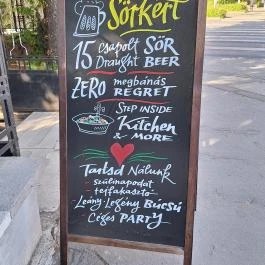 Sörkert
15 Csapolt SÖR
Draught BEER
ZERO megbánás
REGRET
STEP INSIDE
Kitchen
& MORE
Tartsd Nálunk
szülinapodat
teffakasztó
Leány-Legény BÚCSÚ
Céges PARTY